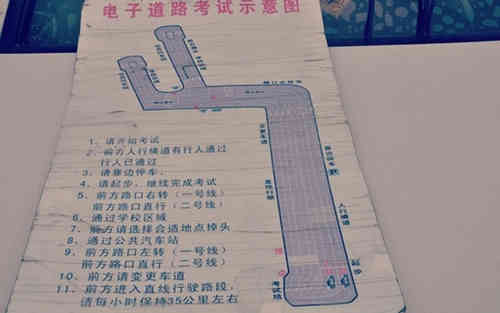 电子道路考试示意图
1、请开始考试
2、前方人行横道有行人通过
行人已通过
3、请靠边停车、
4、请起步，继续完成考试
5、前方路口右转（一号线）
前方路口直行（二号线）
6、通过学校区域
7、前方请选择合适地点掉头
8、通过公共汽车站
9、前方路口左转（一号线）
前方路口直行（二号线）
10、前方请变更车道
11、前方进入直线行驶路段，
请每小时保持35公里左右
变更车道
直线行驶
人行横道
起步
考试场